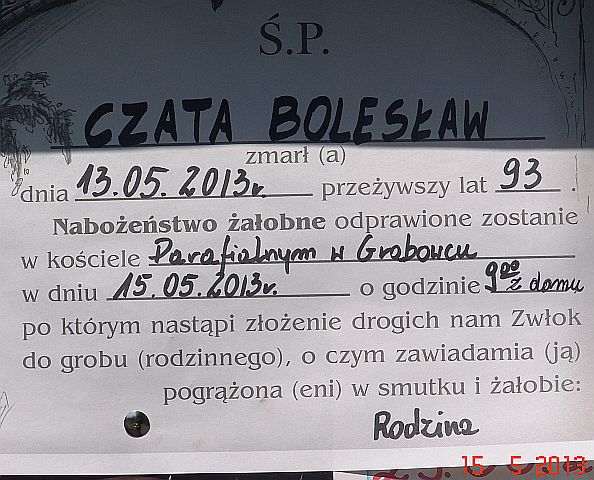 Ś.P.
CZATA BOLESŁAW
zmarł (a)
dnia 13.05.2013r. przeżywszy lat 93 .
Nabożeństwo żałobne odprawione zostanie
w kościele Parafialnym w Grabowcu
w dniu 15.05.2013r. o godzinie 9⁰⁰ z domu
po którym nastąpi złożenie drogich nam Zwłok
do grobu (rodzinnego), o czym zawiadamia (ją)
pogrążona (eni) w smutku i żałobie:
Rodzina
15 5 2013